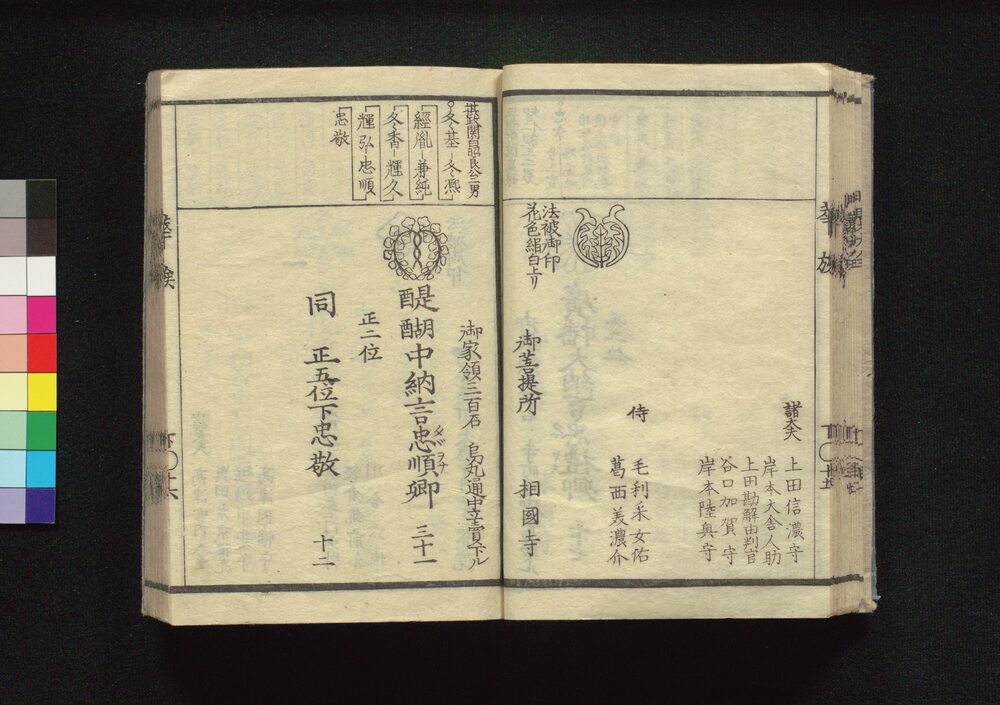 諸大夫
上田信濃守
岸本大舎人助
上田勘解由判官
谷口加賀守
岸本陸奥守
侍
毛利采女佑
葛西美濃介
法被御印
花色絹白上リ
御菩提所
相國寺
冬基-冬凞
經胤-兼純
冬香-輝久
輝弘-忠順
忠敬
御家領三百石 烏丸通中立賣下ル
醍醐中納言忠順卿 三十一
正二位
同 正五位下忠敬 十二
華族
華族